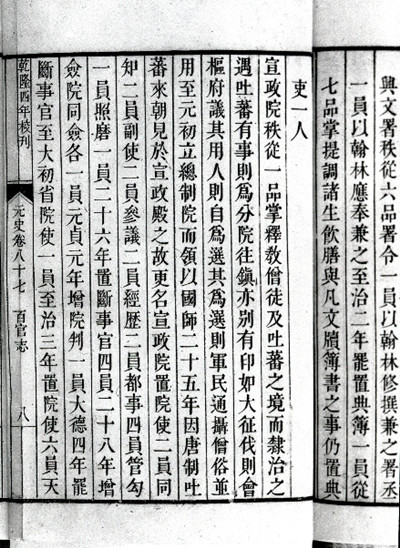 興文署秩從六品署令一員以翰林修撰兼之署丞
一員以翰林應奉兼之至治二年罷置典簿一員從
七品掌提調諸生飲膳與凡文牘簿書之事仍置典
吏一人
宣政院秩從一品掌釋教僧徒及吐蕃之境而隸治之
遇吐蕃有事則爲分院往鎭亦别有印如大征伐則會
樞府議其用人則自爲選其爲選則軍民通攝僧俗並
用至元初立總制院而領以國師二十五年因唐制吐
蕃來朝見於宣政殿之故更名宣政院置院使二員同
知二員副使二員參議二員經歷二員都事四員管勾
一員照磨一員二十六年置斷事官四員二十八年增
僉院同僉各一員元貞元年增院判一員大德四年罷
斷事官至大初省院使一員至治三年置院使六員天
乾隆四年校刊
元史卷八十七
百官志
八